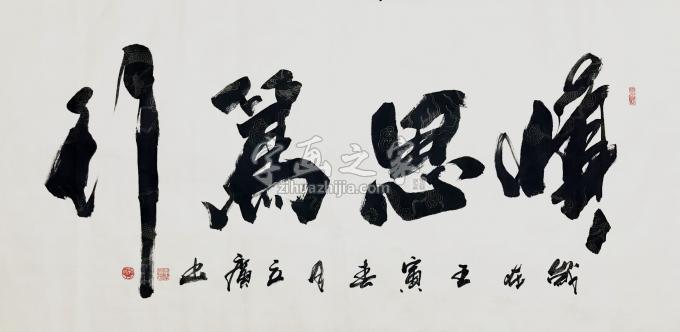 慎思篤行
歲在壬寅春月立廣书
字画之家
zihuazhijia.com